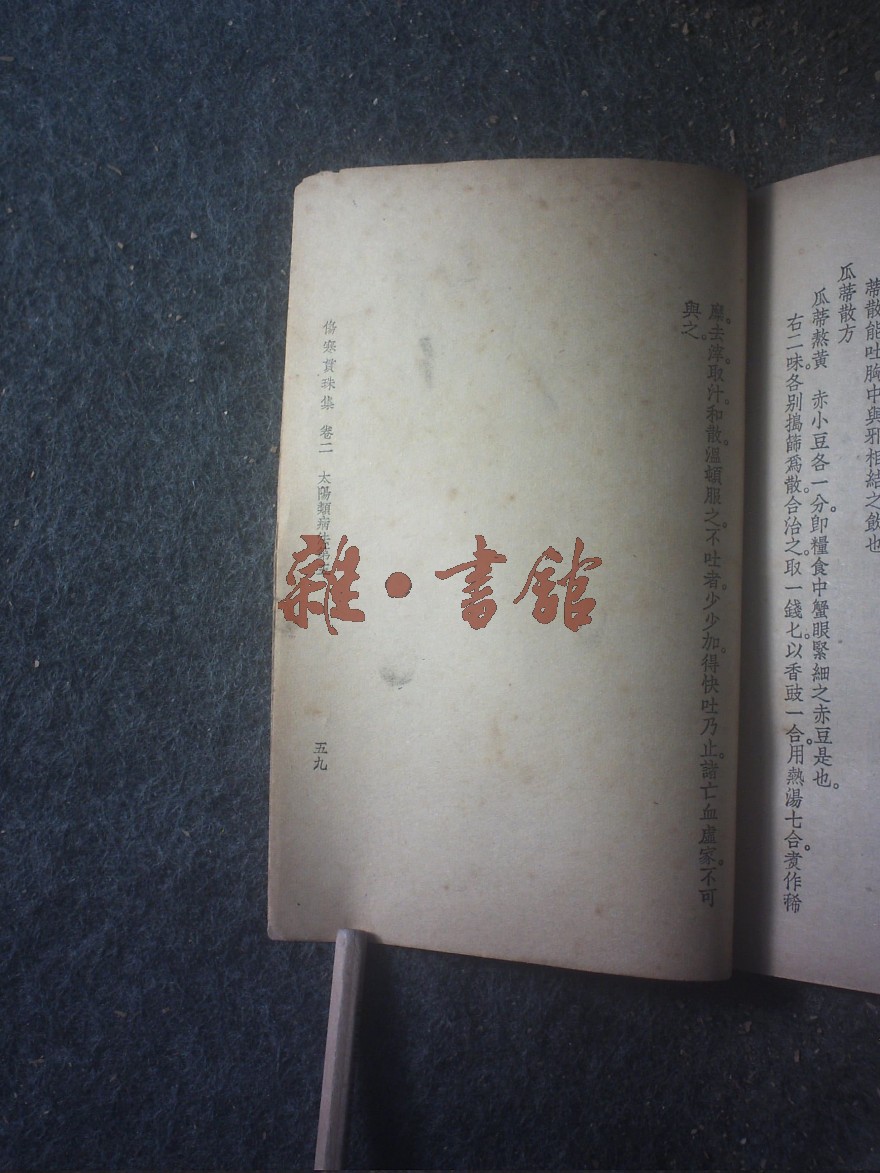 蒂散能吐胸中與邪相結之飲也
瓜蒂散方
瓜蒂熬黃　赤小豆各一分。卽糧食中蟹眼緊細之赤豆是也。
右二味。各別搗篩爲散。合治之。取一錢匕。以香豉一合。用熱湯七合。煑作稀
糜。去滓。取汁。和散。溫頓服之。不吐者。少少加。得快吐乃止。諸亡血虛家。不可
與之。
傷寒貫珠集　卷二　太陽類病法第
五九
雜·書館